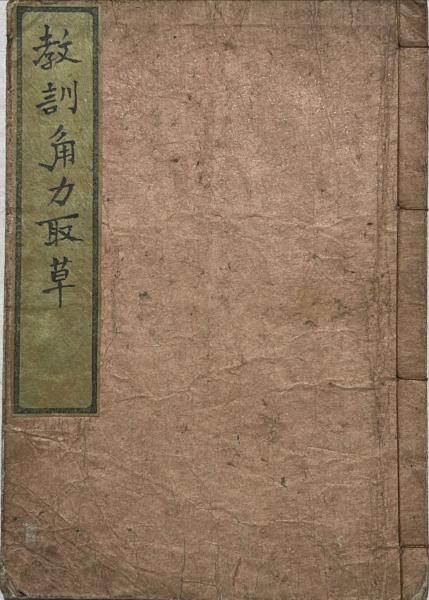 教訓角力取草